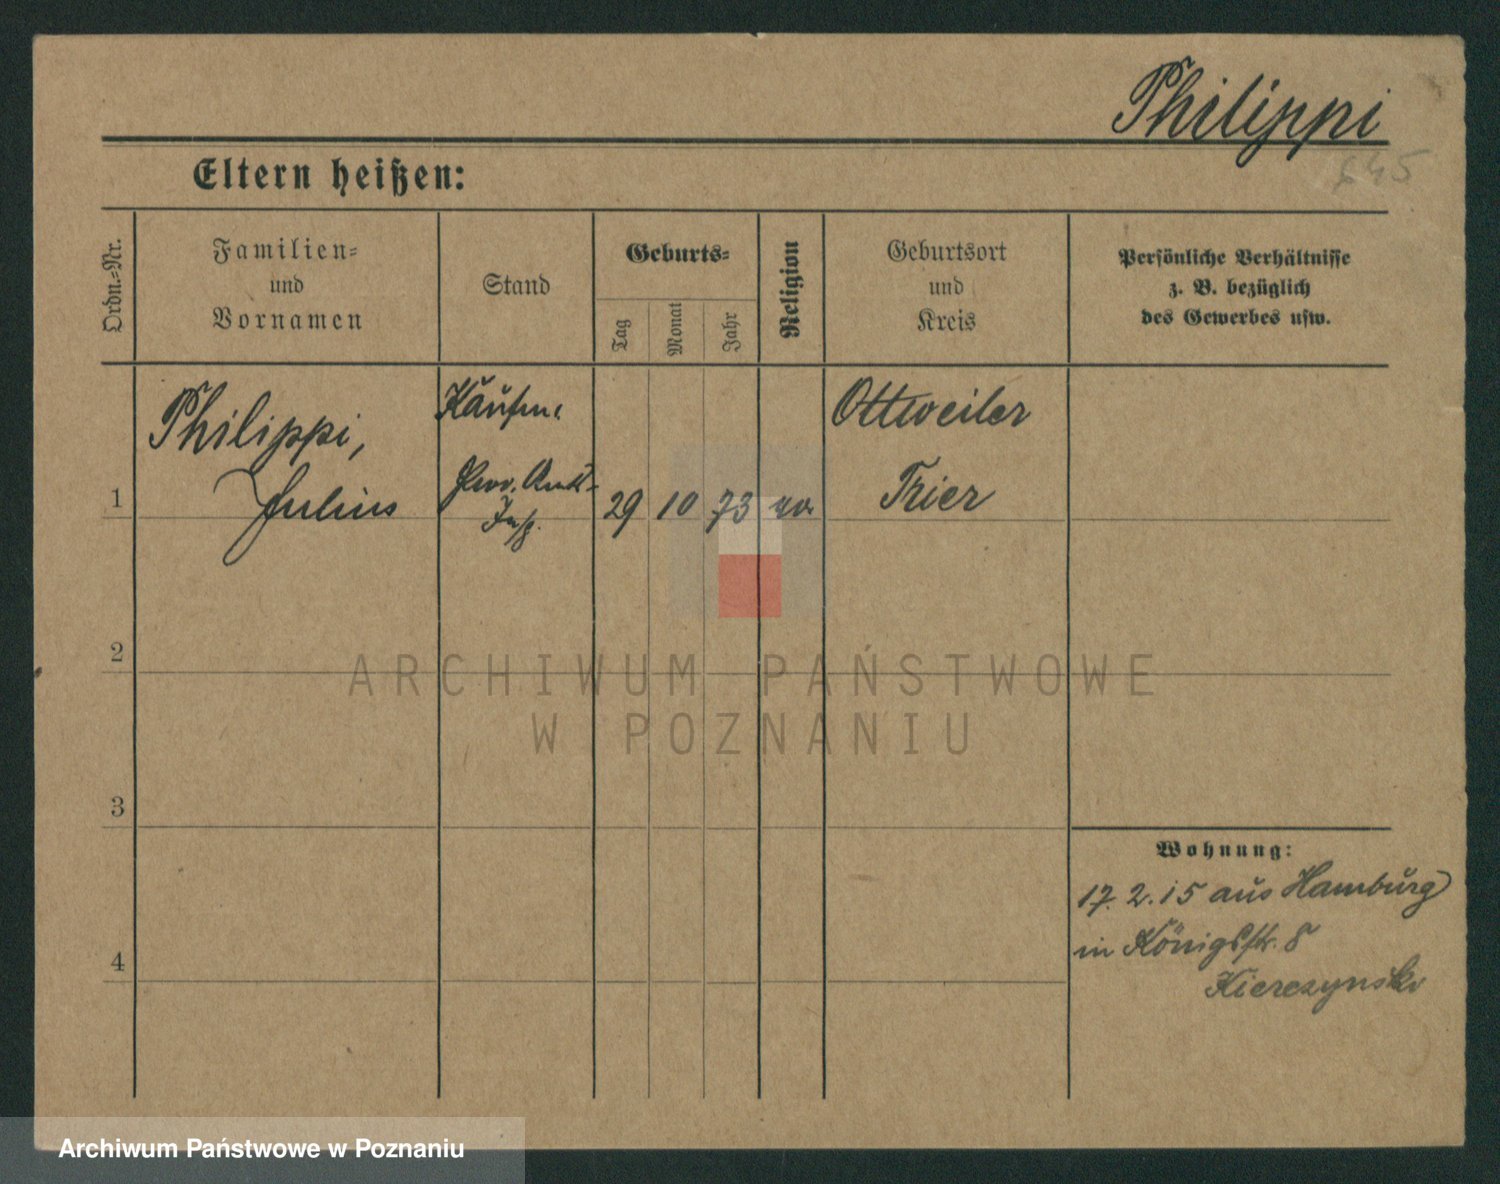 Philippi
645
Eltern heißen:
Ordn.-Nr.
Familien-
und
Vornamen
Stand
Geburts-
Tag
Monat
Jahr
Religion
Geburtsort
und
Kreis
Persönliche Verhältnisse
z. B. bezüglich
des Gewerbes usw.
1
Philippi,
Julius
Kaufm.
Prov. Amts-
Insp.
29
10
73
Ottweiler
Trier
2
3
4
Wohnung:
17.2.15 aus Hamburg
in Königstr. 8
Kierczynski
ARCHIWUM PAŃSTWOWE
W POZNANIU
Archiwum Państwowe w Poznaniu